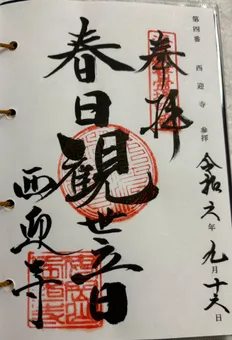 第四番 西迎寺 参拝
令和六年九月十六日
奉拝
春日観世音
西迎寺